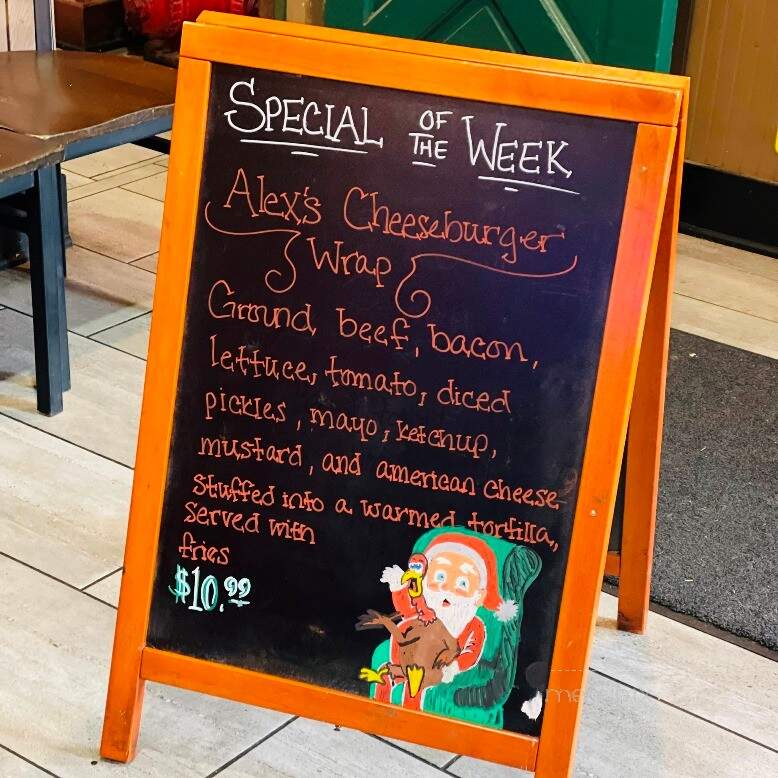 SPECIAL OF THE WEEK
Alex's Cheeseburger
Wrap
Ground beef, bacon,
lettuce, tomato, diced
pickles, mayo, ketchup,
mustard, and american cheese
Stuffed into a warmed tortilla,
served with
fries
$10.99